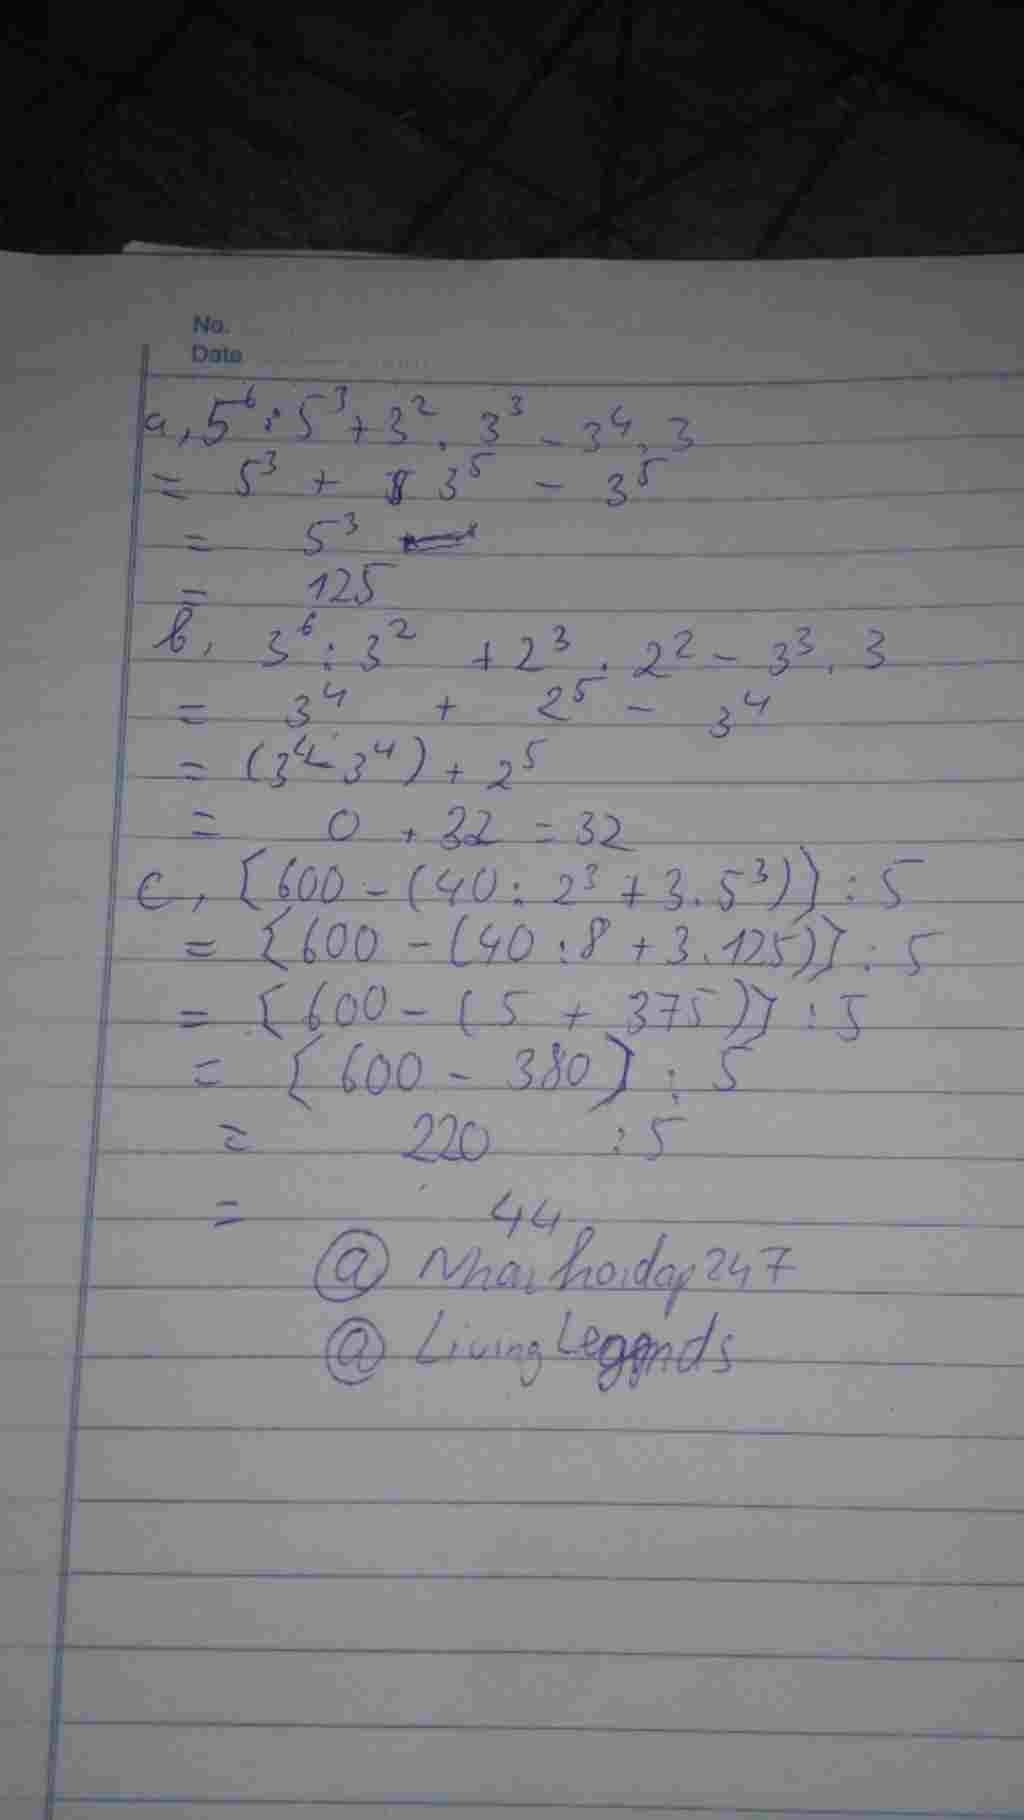 No.
Date
a, 5⁶ : 5³ + 3² . 3³ - 3⁴ . 3
= 5³ + 3⁵ - 3⁵
= 5³
= 125
b, 3⁶ : 3² + 2³ . 2² - 3³ . 3
= 3⁴ + 2⁵ - 3⁴
= (3⁴ - 3⁴) + 2⁵
= 0 + 32 = 32
c, [600 - (40 : 2³ + 3 . 5³)] : 5
= [600 - (40 : 8 + 3 . 125)] : 5
= [600 - (5 + 375)] : 5
= [600 - 380] : 5
= 220 : 5
= 44
@ Nhaihoidap247
@ LivingLegends